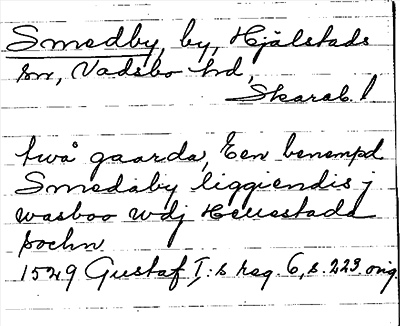 Smedby, by, Hjälstads
sn, Vadsbo hd,
Skarab. l
två gaarda, Een benempd
Smedaby liggiendis j
wasboo wdj Heuestada
sochn
1529 Gustaf I:s reg. 6, s. 223. orig.